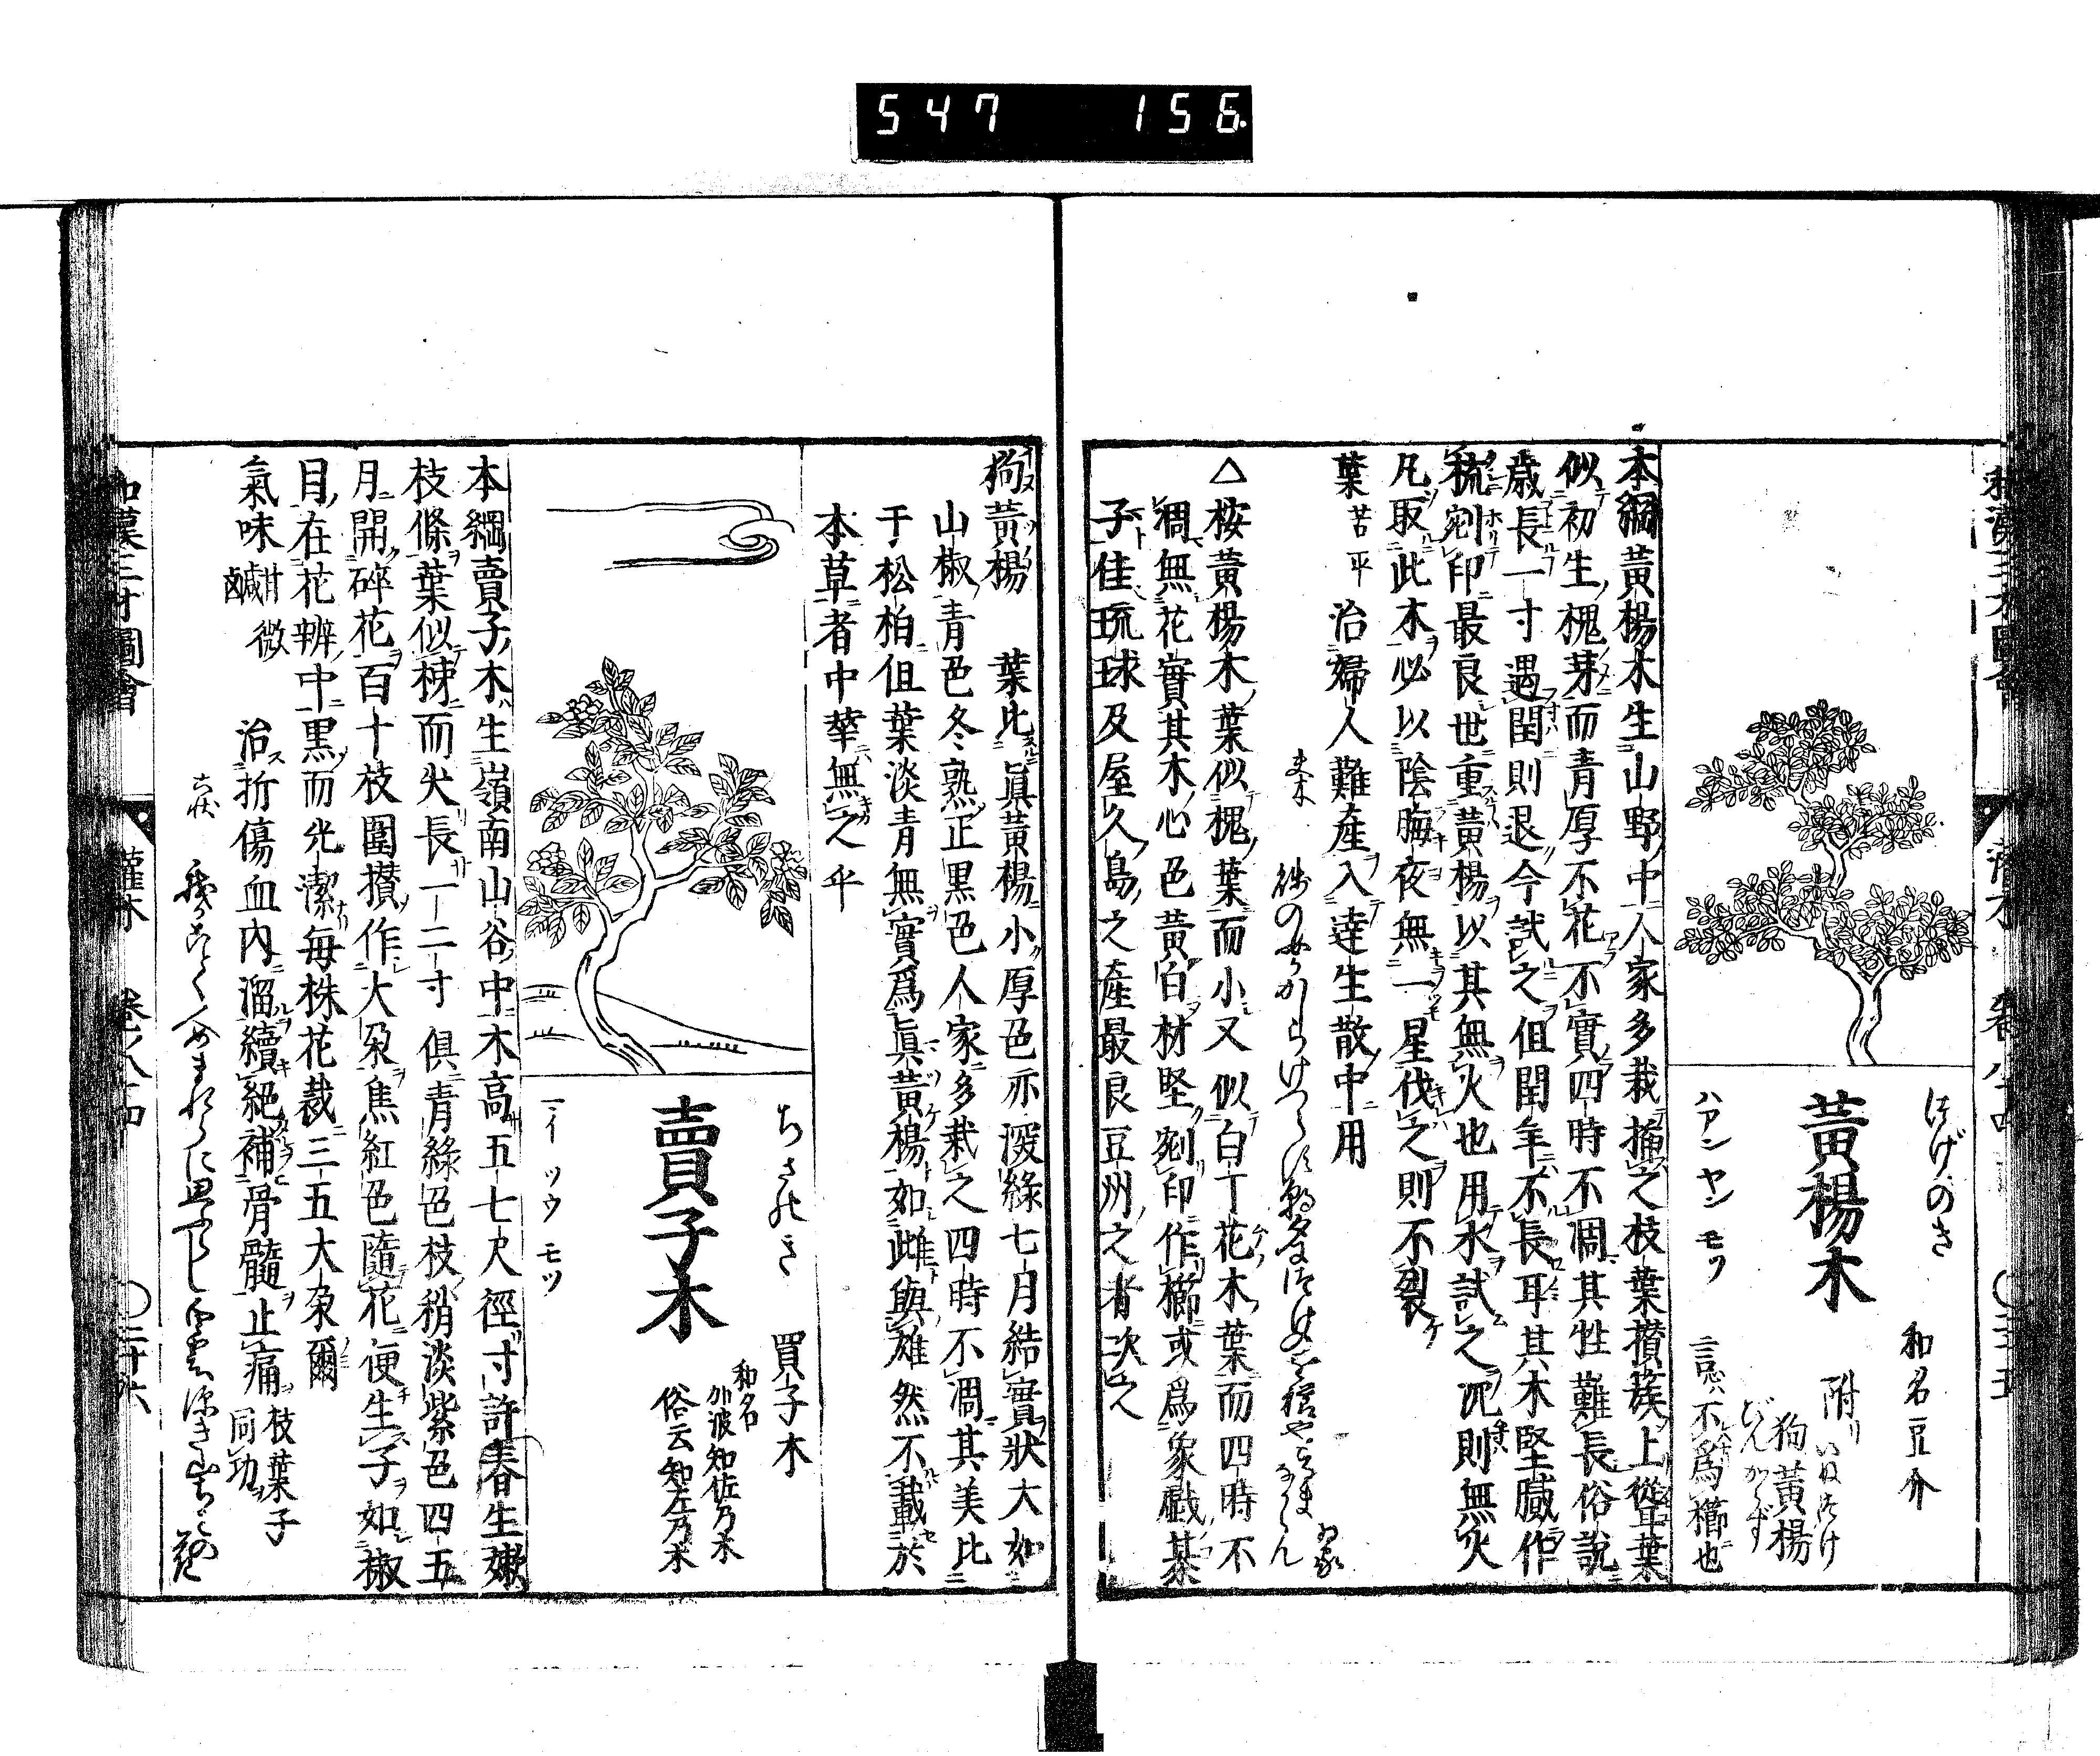 547 156
つげのき
和名豆介
黃楊木
附
いぬつげ
狗黃楊
ハアン ヤン モツ
言不爲櫛也
本綱黃楊木生山野中人家多栽揷之枝葉攅蔟上聳葉
似初生槐芽而青厚不花不實四時不凋其性難長俗說
歲長一寸遇閏則退今試之但閏年不長耳其木堅膩作
梳剜印最良世重黃楊以其無火也用水試之沉則無火
凡取此木必以陰晦夜無一星伐之則不裂
葉 苦平 治婦人難產入達生散中用
△桉黃楊木葉似槐葉而小又似白丁花木葉而四時不
凋無花實其木心色黃白材堅剜印作櫛或爲象戲棊
子佳琉球及屋久島之產最良豆州之者次之
狗黃楊 葉比眞黃楊小厚色亦深綠七月結實狀大如
山椒青色冬熟正黒色人家多栽之四時不凋其美比
于松柏但葉淡青無實爲眞黃楊如雌與雄然不載於
本草者中華無之乎
ちさのき
買子木
賣子木
和名
加波知佐乃木
俗云知左乃木
マイ ツウ モツ
本綱賣子木生嶺南山谷中木高五七尺徑寸許春生嫩
枝條葉似楝而尖長一二寸俱青綠色枝梢淡紫色四五
月開碎花百十枝圍攅作大朶焦紅色隨花便生子如椒
目在花瓣中黒而光潔每株花裁三五大朶爾
氣味 甘微鹹 治折傷血內溜續絕補骨髓止痛 枝葉子同功
和漢三才圖會 灌木 卷之八十四 〇二十六